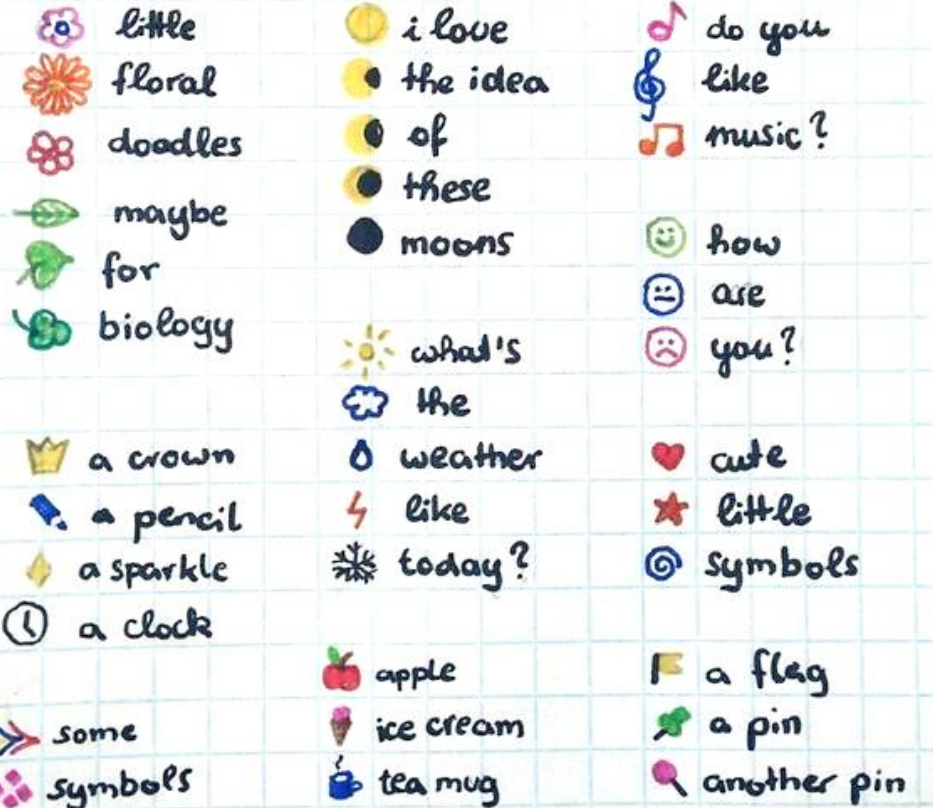 little
floral
doodles
maybe
for
biology
a crown
a pencil
a sparkle
a clock
some
symbols
i love
the idea
of
these
moons
what's
the
weather
like
today?
apple
ice cream
tea mug
do you
like
music?
how
are
you?
cute
little
symbols
a flag
a pin
another pin